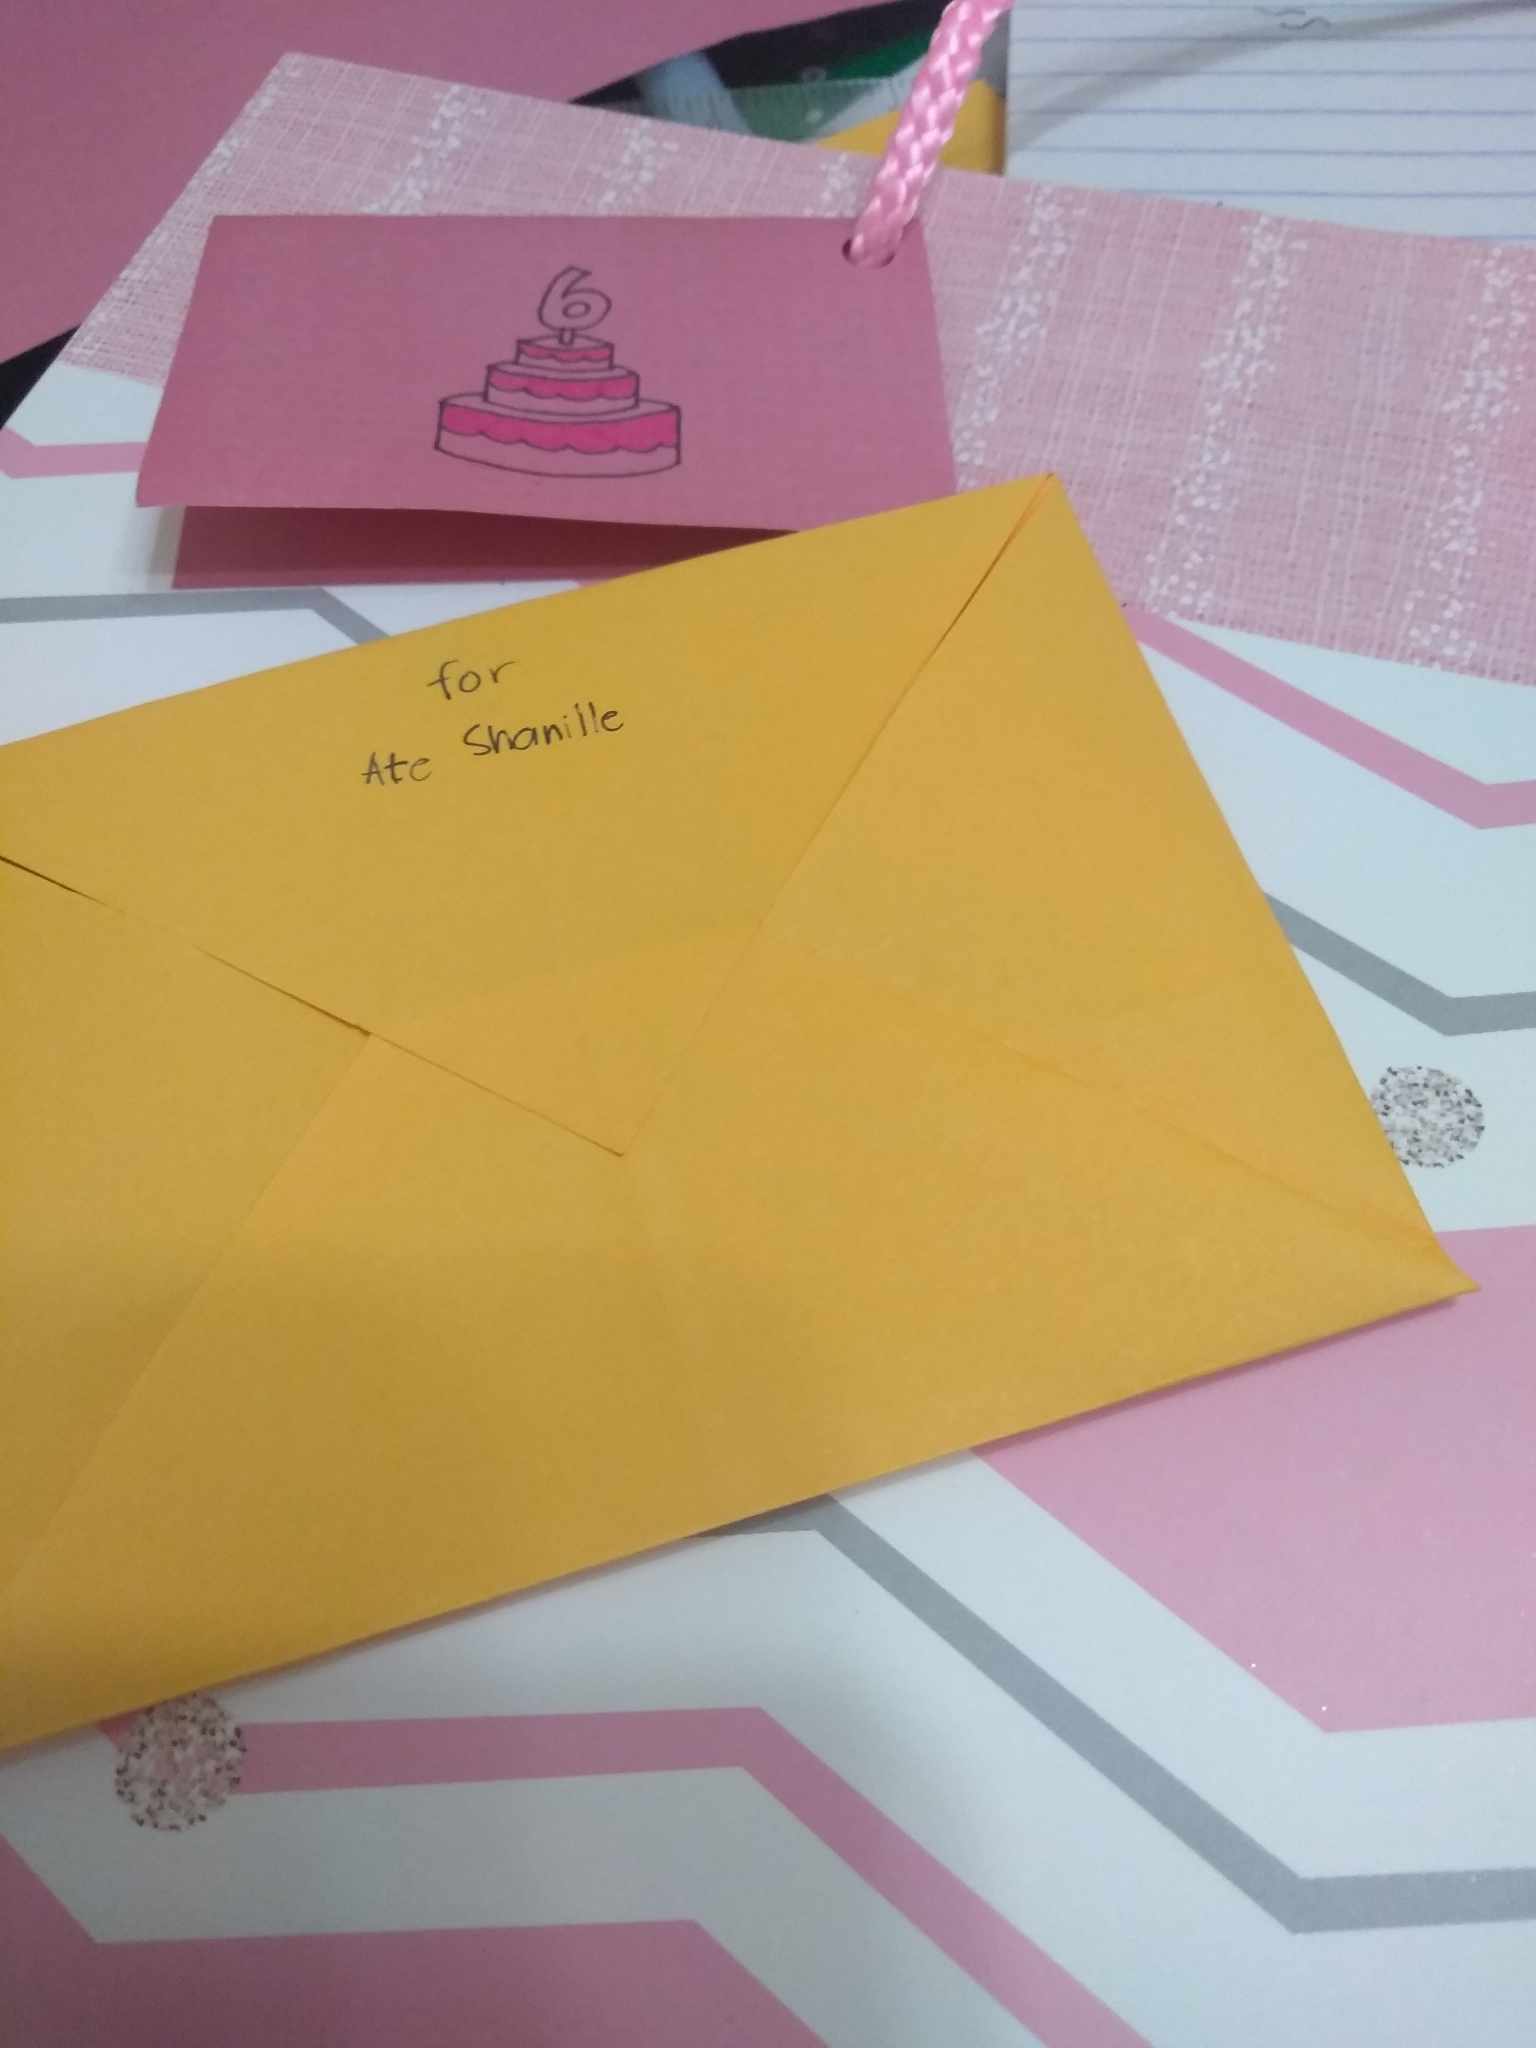 6
for
Ate Shanille